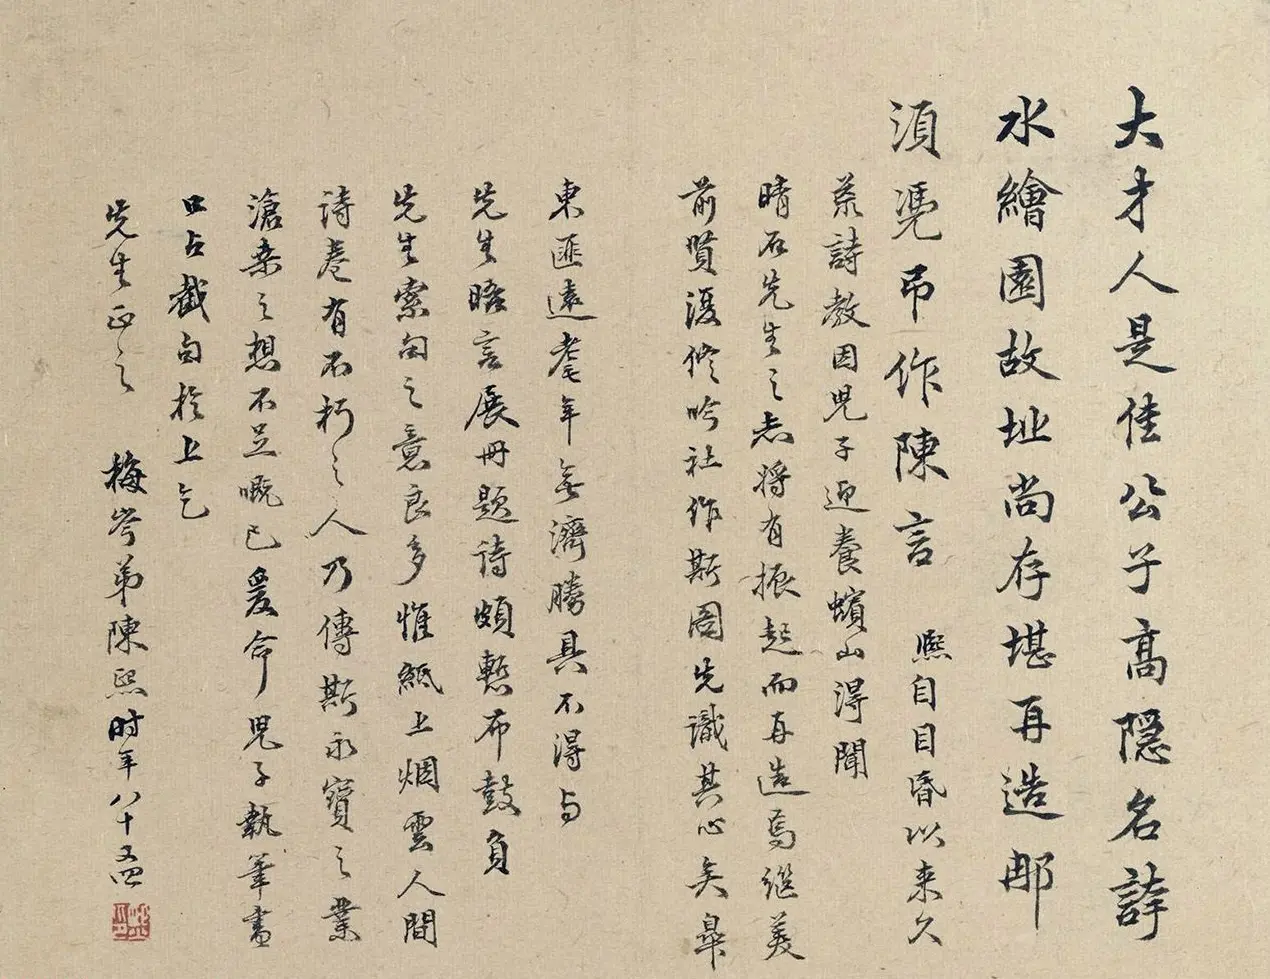 大才人是佳公子高隱名誇
水繪園故址尚存堪再造那
須憑弔作陳言 熙自目昏以来久
荒詩教因児子迎養蠙山得聞
晴石先生之志将有振起而再造焉継美
前賢復修吟社作斯圖先識其心矣皐
東匪遠耄年無濟勝具不得与
先生晤言展冊題詩頗慙布鼓負
先生索句之意良多惟紙上烟雲人間
詩卷有不朽之人乃傳斯永寶之業
滄桒之想不足嘅已爰命児子執筆書
口占截句於上乞
先生正之 梅岑弟陳熙时年八十又四